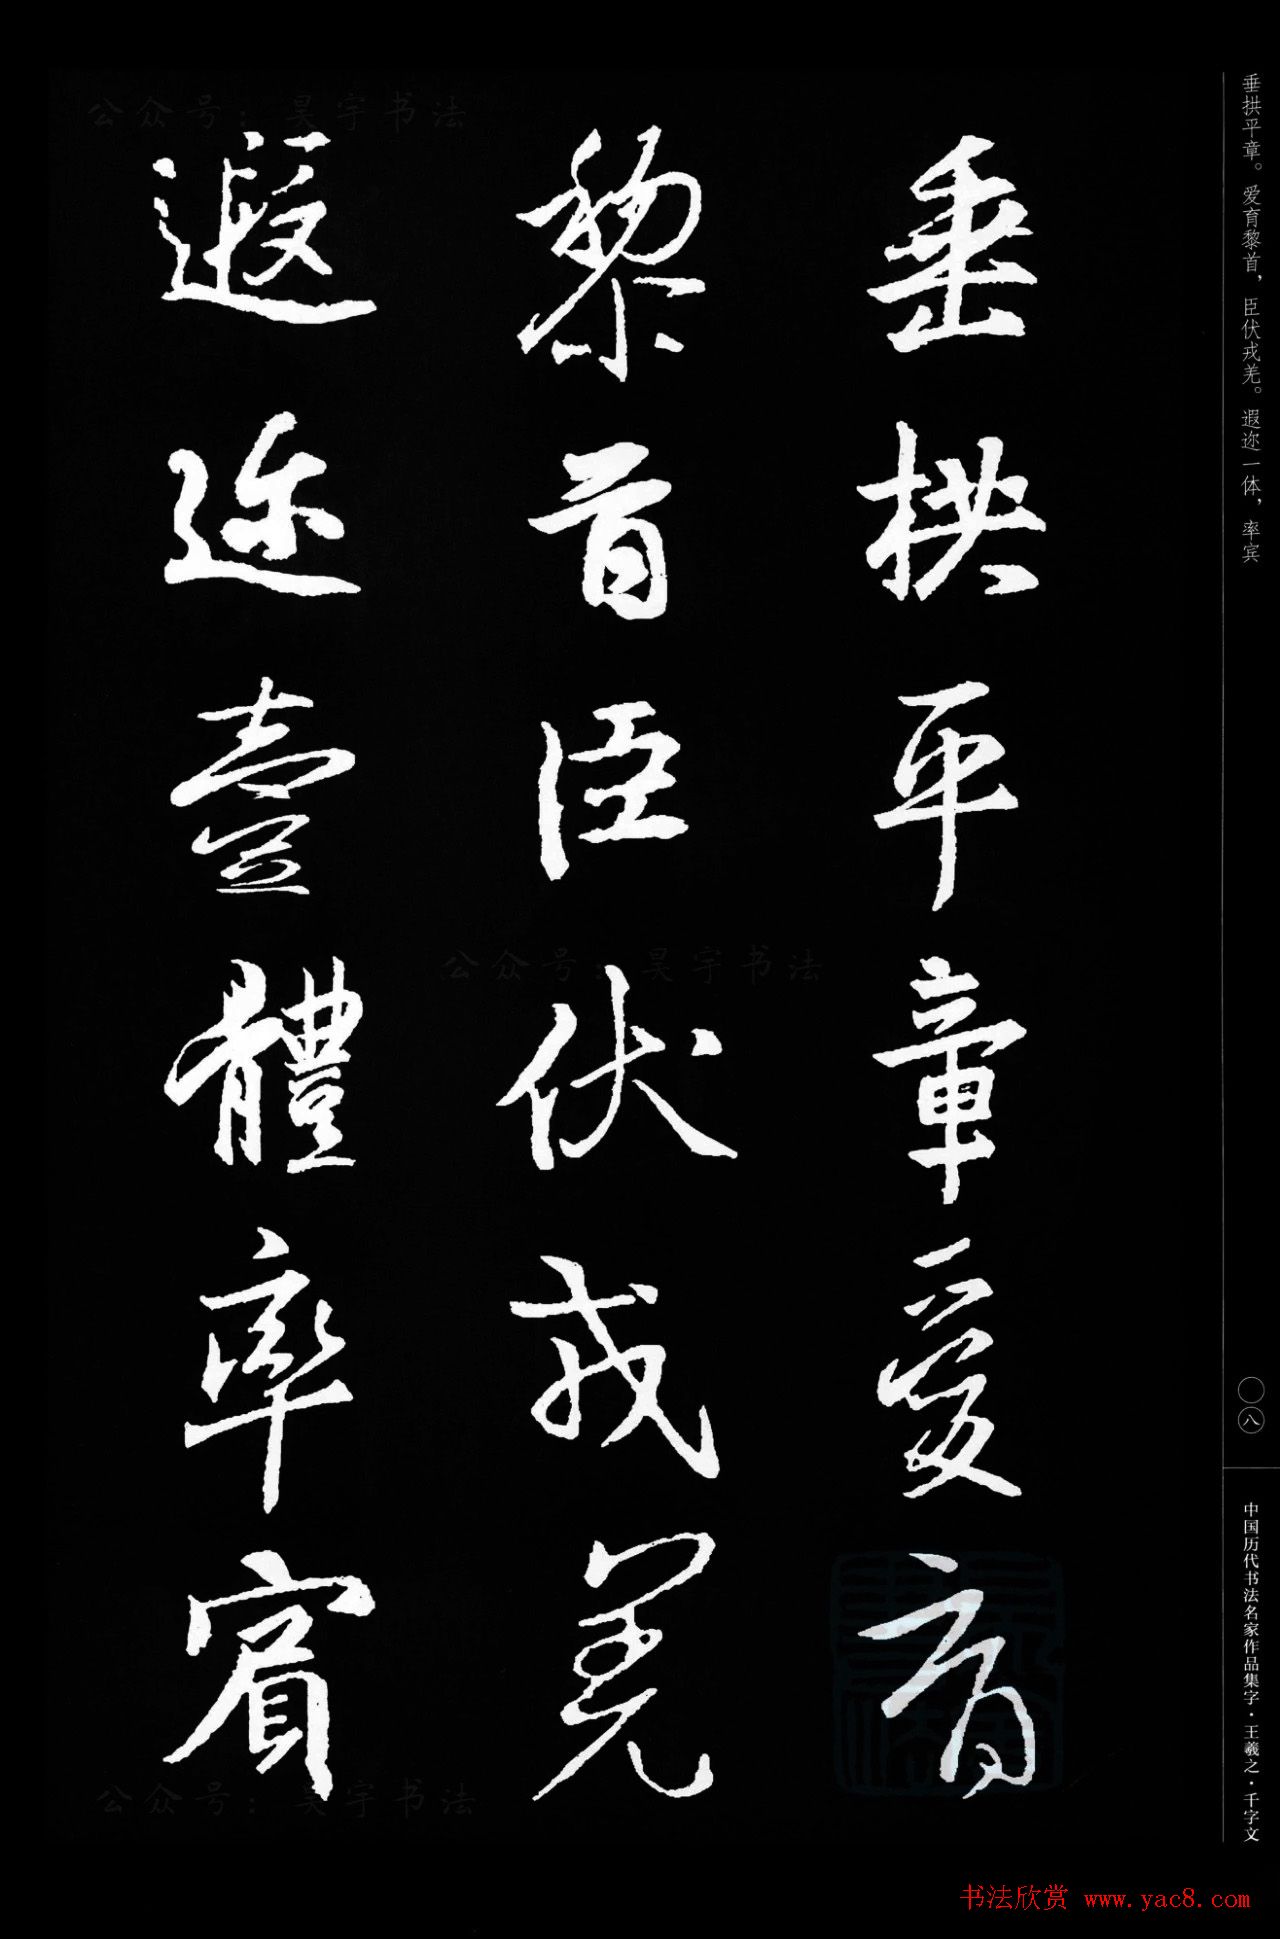 垂拱平章愛育
黎首臣伏戎羌
遐迩壹體率賓
垂拱平章。爱育黎首，臣伏戎羌。遐迩一体，率宾
〇八
中国历代书法名家作品集字·王羲之·千字文
公众号：昊宇书法
公众号：昊宇书法
公众号：昊宇书法
书法欣赏 www.yac8.com